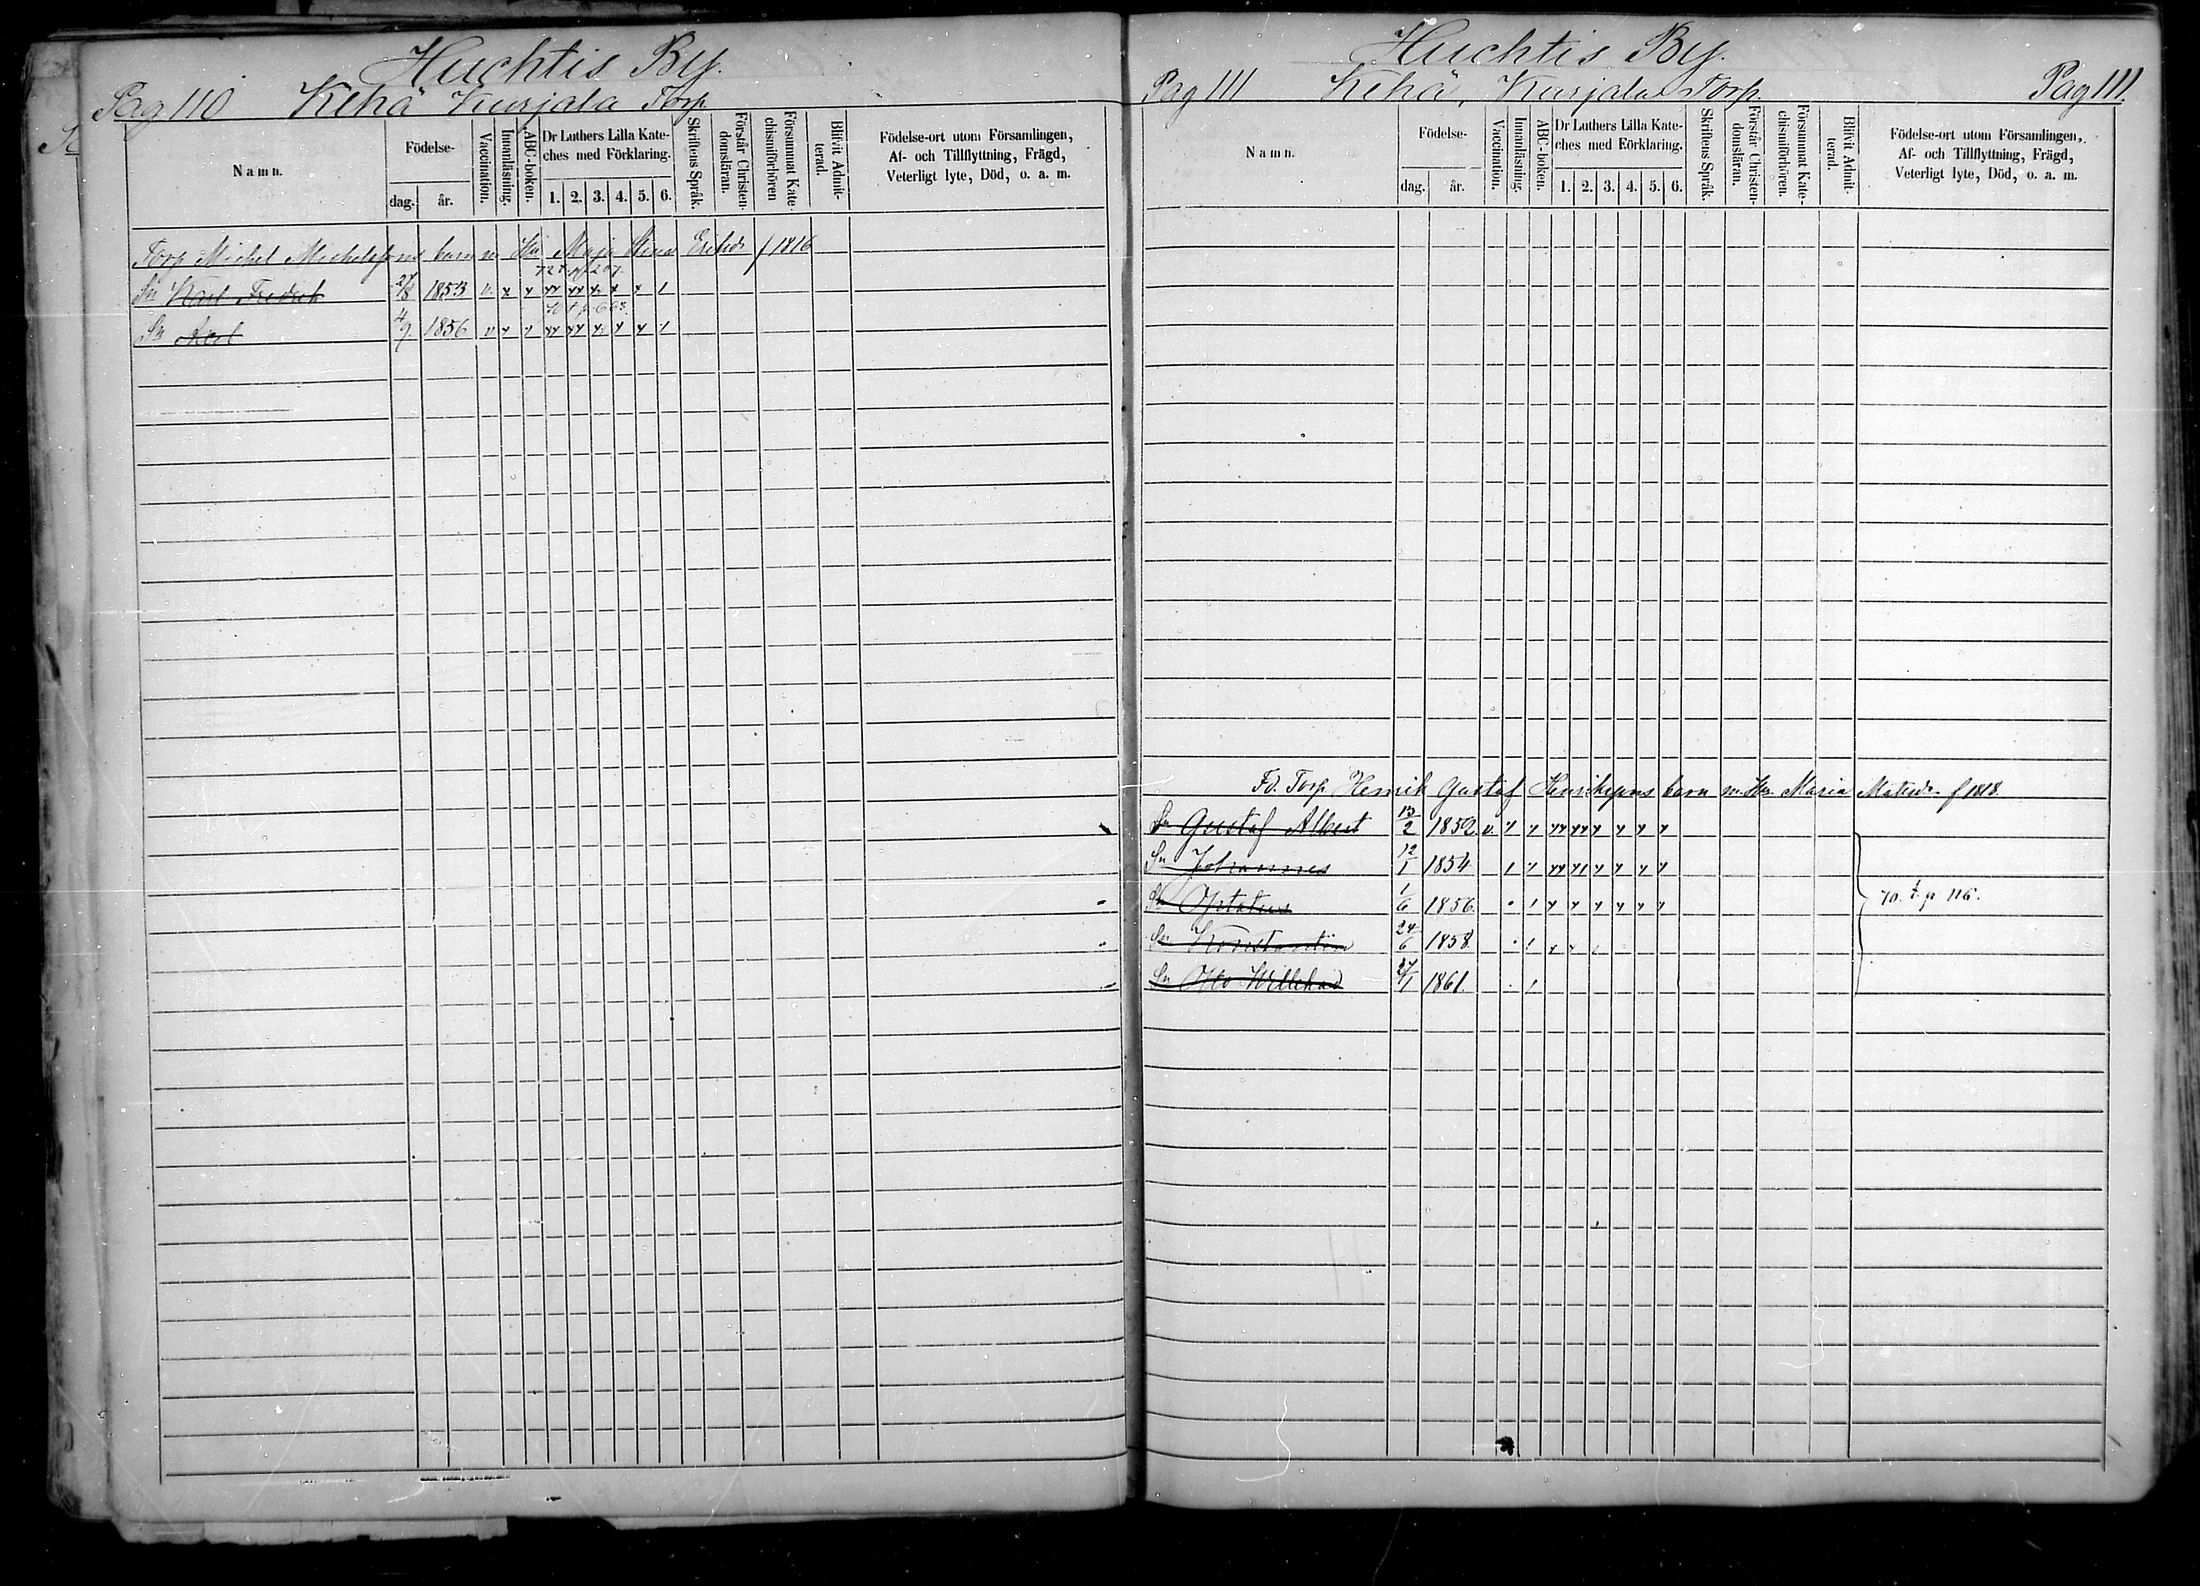 Huchtis By.
Pag 110 Kehä Kurjala Torp.
Namn.
Födelse-
dag. år.
Vaccination.
Innanläsning.
ABC-boken.
Dr Luthers Lilla Kate-
ches med Förklaring.
1. 2. 3. 4. 5. 6.
Skriftens Språk.
Förstår Christen-
domsläran.
Försummat Kate-
chismiförhören
Blifvit Admit-
terad.
Födelse-ort utom Församlingen,
Af- och Tillflyttning, Frägd,
Veterligt lyte, Död, o. a. m.
Torp Michel Michelssons barn m Hu Maja Stina Ericsdr f 1816
72 t. p 207.
Sn Karl Fredrik 27/8 1853 v.
70 t p 663
Sn Axel 4/9. 1856 v
Huchtis By.
Pag 111 Kehä, Kurjala Torp. Pag 111.
Namn.
Födelse-
dag. år.
Vaccination.
Innanläsning.
ABC-boken.
Dr Luthers Lilla Kate-
ches med Förklaring.
1. 2. 3. 4. 5. 6.
Skriftens Språk.
Förstår Christen-
domsläran.
Försummat Kate-
chismiförhören.
Blifvit Admit-
terad.
Födelse-ort utom Församlingen,
Af- och Tillflyttning, Frägd,
Veterligt lyte, Död, o. a. m.
Fd. Torp Henrik Gustaf Henrikssons barn m Hu. Maria Matsdr f 1818.
Sn Gustaf Albert 13/2 1852 v.
Sn Johannes 12/1 1854
Sn Optatus 1/6 1856
70. t. p 116.
Sn Konstantin 24/6 1858
Sn Otto Willehad 27/1 1861.